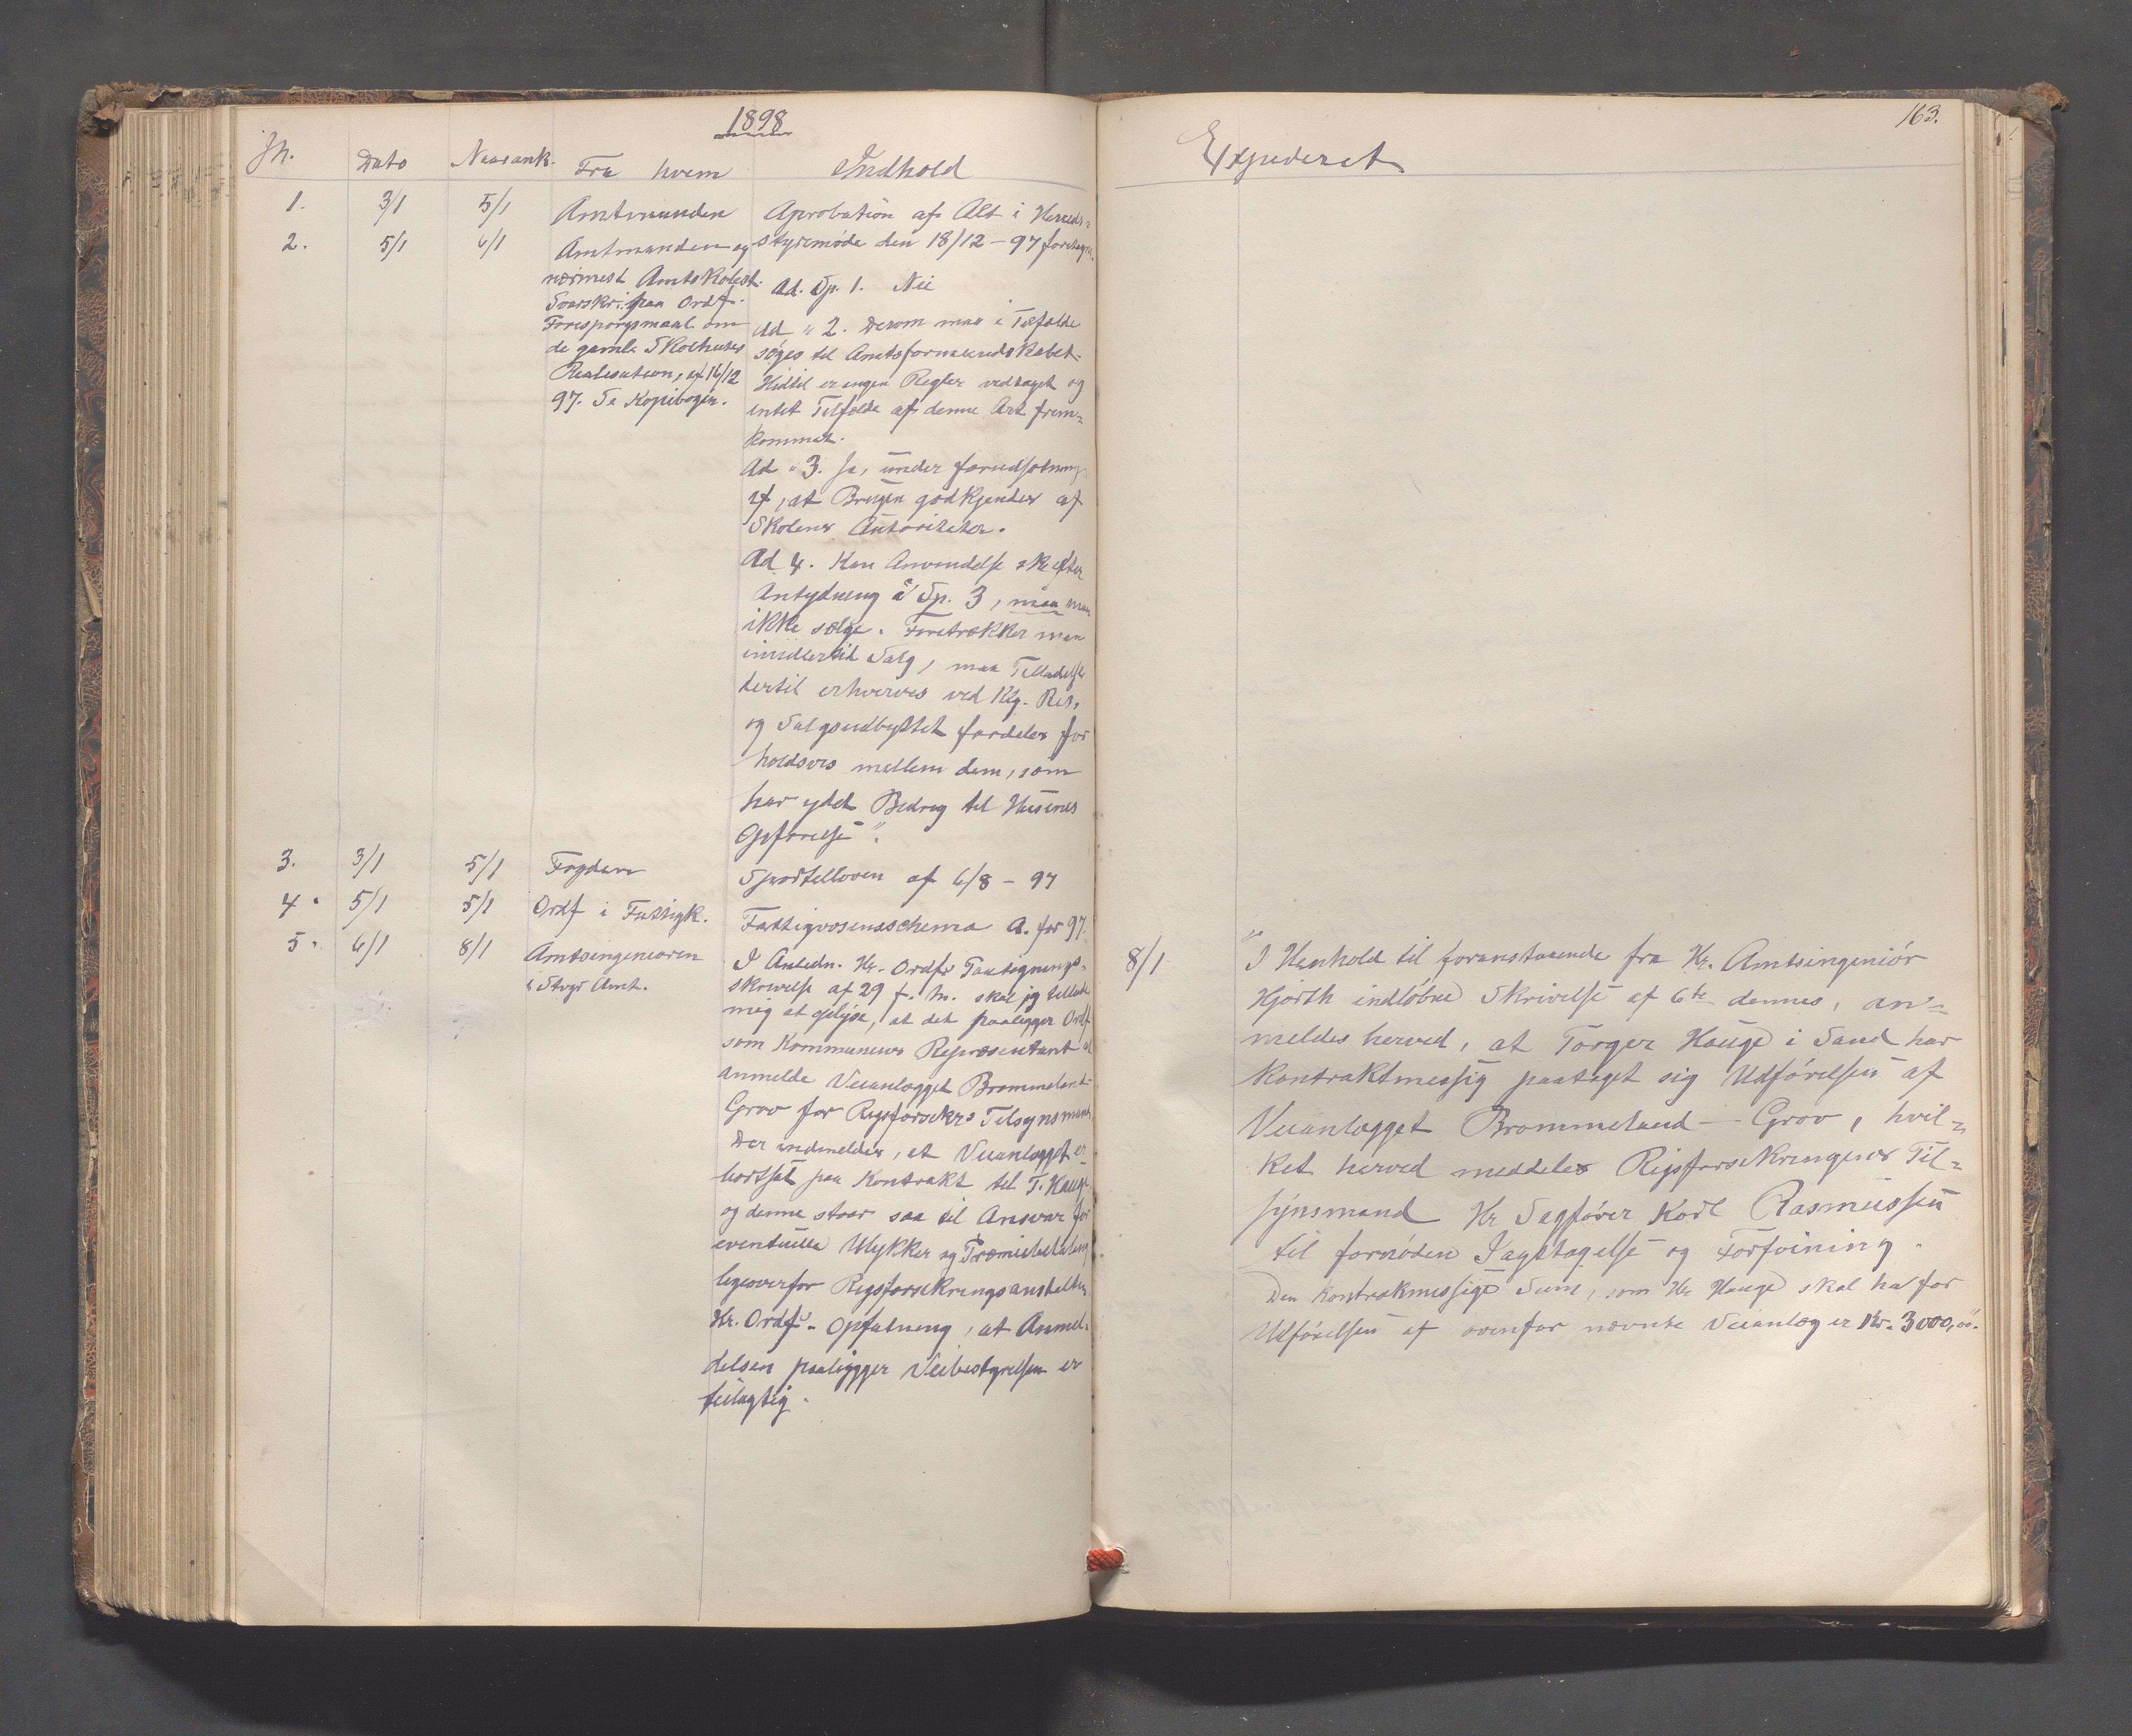 1898
Jn. Dato Naarank. Fra hvem Indhold
1. 3/1 5/1 Amtmanden Aprobation af Alt i Herreds=
2. 5/1 6/1 Amtmanden og styremøde den 18/12 - 97 foretagne.
nærmest Amtskolest.
Svarskr. paa Ordf.
Forespørgsmaal om
de gamle Skolehuses
Realisation, af 16/12
97. Se Kopibogen.
Ad. Sp. 1. Nei
Ad " 2. Derom maa i Tilfælde
søges til Amtsformandskabet.
Hidtil er ingen Regler vedtaget og
intet Tilfælde af denne Art frem=
kommet.
Ad " 3. Ja, under forudsætning
af, at Brugen godkjendes af
Skolens Autoriteter.
Ad 4. Kan Anvendelse ske efter
Antydning i Sp. 3, maa man
ikke sælge. Foretrækker man
imidlertid Salg, maa Tilladelse
dertil erhverves ved Klg. Res.
og Salgsudbyttet fordeles for
holdsvis mellem dem, som
har ydet Bidrag til Husenes
Opførelse".
3. 3/1 5/1 Fogden Sportelloven af 6/8 - 97
4. 5/1 5/1 Ordf i Fattigk. Fattigvæsensschema A. for 97.
5. 6/1 8/1 Amtsingeniøren
i Stvgr Amt.
I Anledn. Hr. Ordfs
skrivelse af 29 f. M. skal jeg tillade
mig at oplyse, at det paaligger Ordf
som Kommunens Repræsentant at
anmelde Veianlægget Brommeland-
Grov for Rigsforsikrs Tilsynsmand.
Der indmeldes, at Veianlægget er
bortsat paa Kontrakt til T. Hauge
og denne staar saa til Ansvar for
eventuelle Ulykker og Præmiebetaling
ligeoverfor Rigsforsikringsanstalten
Hr. Ordfs Opfatning, at Anmel=
delsen paaligger Veibestyrelsen er
feilagtig.
163.
Expederet
8/1 "I Henhold til foranstaaende fra Hr. Amtsingeniör
Hjorth indløbne Skrivelse af 6te dennes, an=
meldes herved, at Torger Hauge i Sand har
kontraktmessig paataget sig Udførelsen af
Veianlægget Brommeland - Grov, hvil=
ket herved meddeles Rigsforsikringens Til=
synsmand Hr Sagfører Karl Rasmussen
til fornøden Iagttagelse og Forføining.
Den kontrakmessige Sum, som Hr Hauge skal ha for
Udførelsen af ovenfor nævnte Veianlæg er Kr. 3000,00".